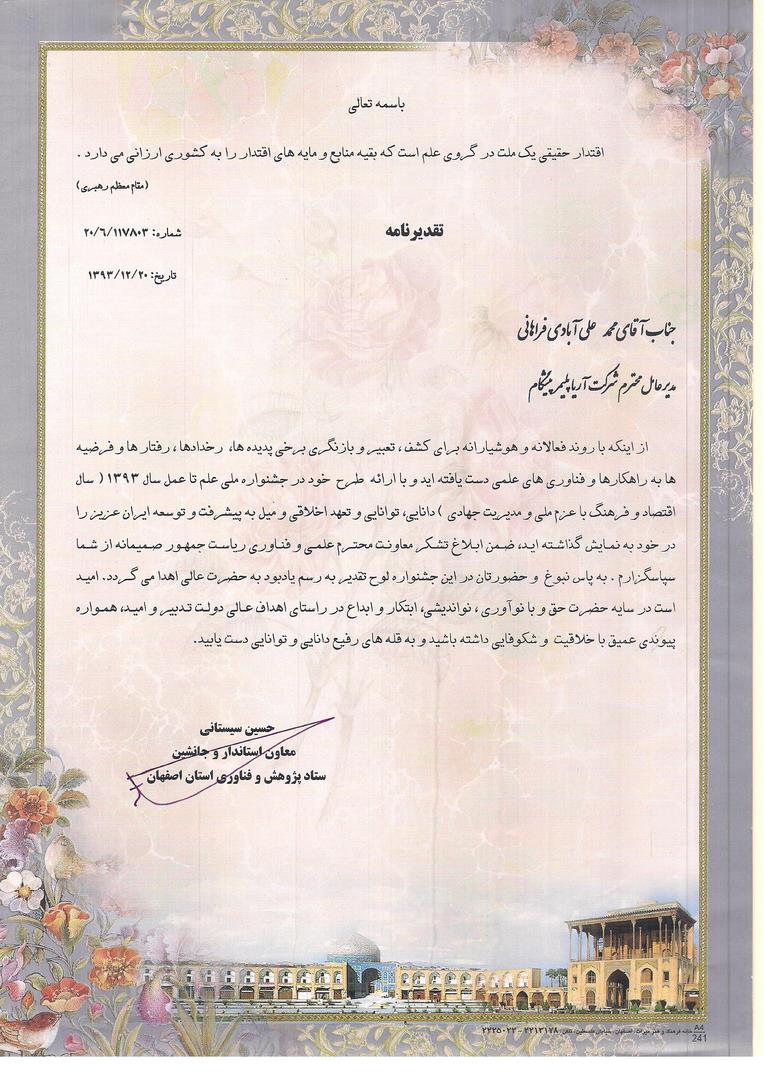 باسمه تعالی
اقتدار حقیقی یک ملت در گروی علم است که بقیه منابع و مایه های اقتدار را به کشوری ارزانی می دارد .
(مقام معظم رهبری)
تقدیرنامه
شماره: ۲۰/۶/۱۱۷۸۰۳
تاریخ: ۱۳۹۳/۱۲/۲۰
جناب آقای محمد علی آبادی فراهانی
مدیرعامل محترم شرکت آریا پلیمر پیشگام
از اینکه با روند فعالانه و هوشیارانه برای کشف ، تعبیر و بازنگری برخی پدیده ها، رخدادها ، رفتار ها و فرضیه
ها به راهکارها و فناوری های علمی دست یافته اید و با ارائه طرح خود در جشنواره ملی علم تا عمل سال ۱۳۹۳ ( سال
اقتصاد و فرهنگ با عزم ملی و مدیریت جهادی ) دانایی، توانایی و تعهد اخلاقی و میل به پیشرفت و توسعه ایران عزیز را
در خود به نمایش گذاشته اید، ضمن ابلاغ تشکر معاونت محترم علمی و فناوری ریاست جمهور صمیمانه از شما
سپاسگزارم . به پاس نبوغ و حضورتان در این جشنواره لوح تقدیر به رسم یادبود به حضرت عالی اهدا می گردد. امید
است در سایه حضرت حق و با نوآوری ، نواندیشی، ابتکار و ابداع در راستای اهداف عالی دولت تدبیر و امید، همواره
پیوندی عمیق با خلاقیت و شکوفایی داشته باشید و به قله های رفیع دانایی و توانایی دست یابید.
حسین سیستانی
معاون استاندار و جانشین
ستاد پژوهش و فناوری استان اصفهان
خانه فرهنگ و هنر میراث، اصفهان، خیابان فلسطین، تلفن: ۲۲۱۳۱۷۸ - ۲۲۲۵۰۲۲
A4
241